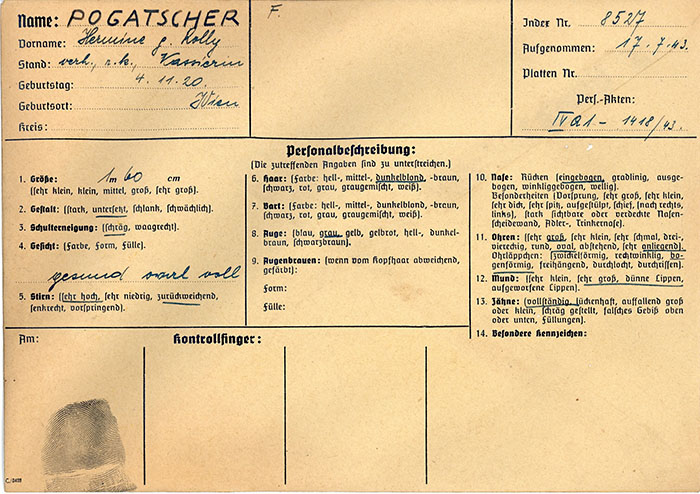 Name: POGATSCHER
Vorname: Hermine g. Rolly
Stand: verh., r.k., Kassierin
Geburtstag: 4.11.20.
Geburtsort: Wien
Kreis:
F.
Index Nr. 8527
Aufgenommen: 17.7.43.
Platten Nr.
Pers.-Akten:
IV A1 - 1418/43.
Personalbeschreibung:
(Die zutreffenden Angaben sind zu unterstreichen.)
1. Größe: 1 m 60 cm
(sehr klein, klein, mittel, groß, sehr groß).
2. Gestalt: (stark, untersetzt, schlank, schwächlich).
3. Schulterneigung: (schräg, waagrecht).
4. Gesicht: (Farbe, Form, Fülle).
gesund oval voll
5. Stirn: (sehr hoch, sehr niedrig, zurückweichend,
senkrecht, vorspringend).
6. Haar: (Farbe: hell-, mittel-, dunkelblond, -braun,
schwarz, rot, grau, graugemischt, weiß).
7. Bart: (Farbe: hell-, mittel-, dunkelblond, -braun,
schwarz, rot, grau, graugemischt, weiß).
8. Auge: (blau, grau, gelb, gelbrot, hell-, dunkel-
braun, schwarzbraun).
9. Augenbrauen: (wenn vom Kopfhaar abweichend,
gefärbt):
Form:
Fülle:
10. Nase: Rücken (eingebogen, gradlinig, ausge-
bogen, winkliggebogen, wellig).
Besonderheiten (Vorsprung, sehr groß, sehr klein,
sehr dick, sehr spitz, aufgestülpt, schief, nach rechts,
links), stark sichtbare oder verdeckte Nasen-
scheidewand, Adler-, Trinkernase).
11. Ohren: (sehr groß, sehr klein, sehr schmal, drei-,
viereckig, rund, oval, abstehend, sehr anliegend).
Ohrläppchen: (zwickelförmig, rechtwinklig, bo-
genförmig, freihängend, durchlocht, durchrissen).
12. Mund: (sehr klein, sehr groß, dünne Lippen,
aufgeworfene Lippen).
13. Zähne: (vollständig, lückenhaft, auffallend groß
oder klein, schräg gestellt, falsches Gebiß oben
oder unten, Füllungen).
14. Besondere Kennzeichen:
Am:
Kontrollfinger: